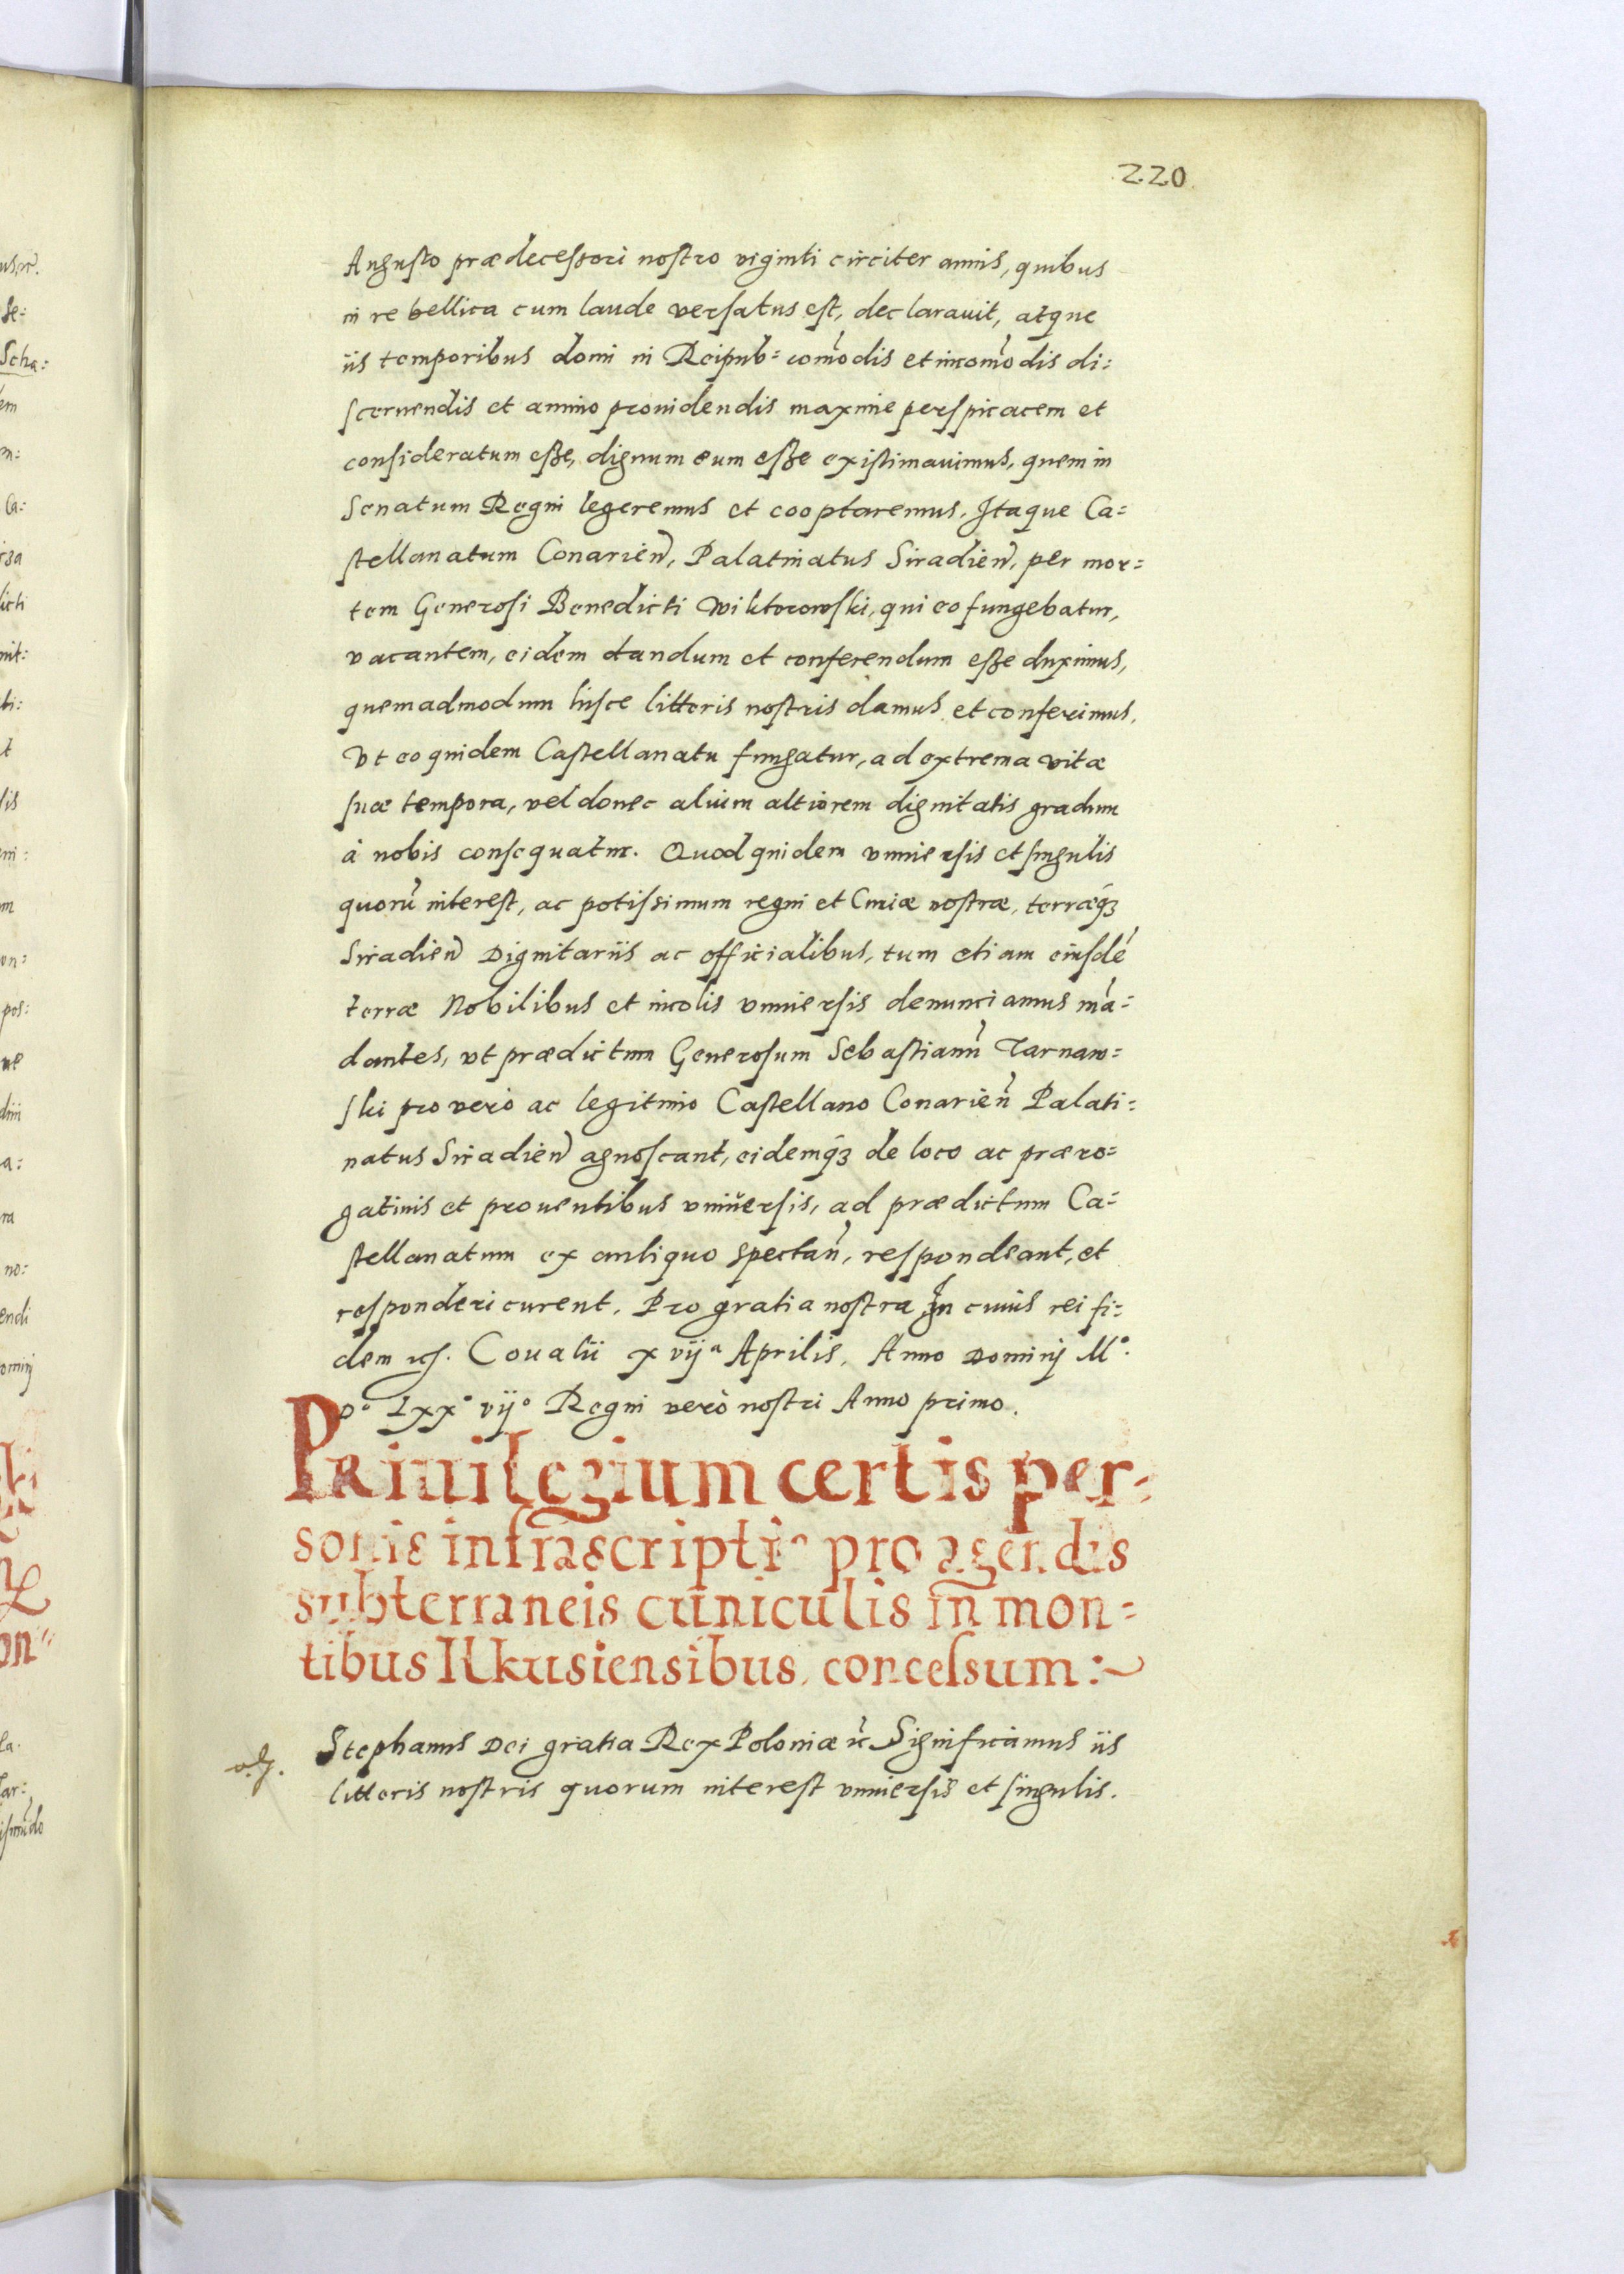 220
Augusto prædecessori nostro viginti circiter annis, quibus
in re bellica cum laude versatus est, declarauit, atque
iis temporibus domi in Reipub= com̃odis et incom̃odis di=
scernendis et animo prouidendis maxime perspicacem et
consideratum esse, dignum eum esse existimauimus, quem in
Senatum Regni legeremus et cooptaremus. Itaque Ca=
stellanatum Conarien̄, Palatinatus Siradien̄, per mor=
tem Generosi Benedicti Wiktorowski, qui eo fungebatur,
vacantem, eidem dandum et conferendum esse duximus,
quemadmodum hisce litteris nostris damus et conferimus.
Vt eo quidem Castellanatu fungatur, ad extrema vitæ
suæ tempora, vel donec alium altiorem dignitatis gradum
à nobis consequatur. Quod quidem vniuersis et singulis
quorū interest, ac potissimum regni et Curiæ nostræ, terræq́ꝫ
Siradien̄ Dignitariis ac officialibus, tum etiam eiusdē
terræ Nobilibus et incolis vniuersis denunciamus mā=
dantes, vt prædictum Generosum Sebastianū Tarnaw=
ski pro vero ac legitimo Castellano Conarien̄ Palati=
natus Siradien̄ agnoscant, eidemq́ꝫ de loco ac præro=
gatiuis et prouentibus vniuersis, ad prædictum Ca=
stellanatum ex antiquo spectan̄, respondeant, et
responderi curent. Pro gratia nostra In cuius rei fi=
dem &c. Coualii xvijᵃ Aprilis, Anno Dominj Mᵒ.
Dᵒ Lxxᵒ vijᵒ Regni verò nostri Anno primo.
Priuilegium certis per=
sonis infrascriptis pro agendis
subterraneis cuniculis in mon=
tibus Ilkusiensibus, concessum:~
Stephanus Dei gratia Rex Poloniæ &c Significamus iis
litteris nostris quorum interest vniuersis et singulis.